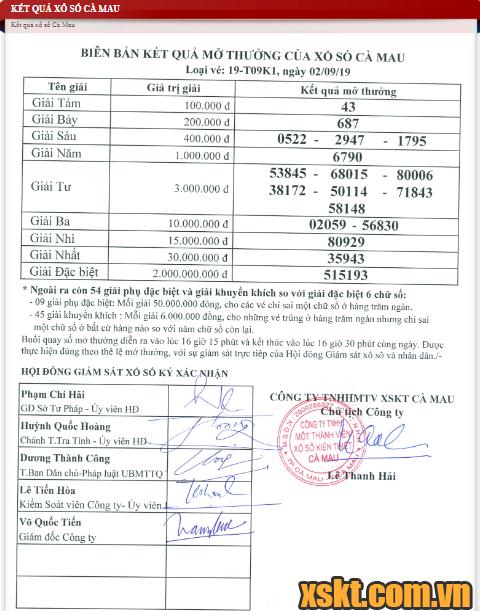 KẾT QUẢ XỔ SỐ CÀ MAU
Kết quả xổ số Cà Mau
BIÊN BẢN KẾT QUẢ MỞ THƯỞNG CỦA XỔ SỐ CÀ MAU
Loại vé: 19-T09K1, ngày 02/09/19
Tên giải Giá trị giải Kết quả mở thưởng
Giải Tám 100.000 đ 43
Giải Bảy 200.000 đ 687
Giải Sáu 400.000 đ 0522 - 2947 - 1795
Giải Năm 1.000.000 đ 6790
Giải Tư 3.000.000 đ 53845 - 68015 - 80006
38172 - 50114 - 71843
58148
Giải Ba 10.000.000 đ 02059 - 56830
Giải Nhì 15.000.000 đ 80929
Giải Nhất 30.000.000 đ 35943
Giải Đặc biệt 2.000.000.000 đ 515193
* Ngoài ra còn 54 giải phụ đặc biệt và giải khuyến khích so với giải đặc biệt 6 chữ số:
- 09 giải phụ đặc biệt: Mỗi giải 50.000.000 đồng, cho các vé chỉ sai một chữ số ở hàng trăm ngàn.
- 45 giải khuyến khích : Mỗi giải 6.000.000 đồng, cho những vé trúng ở hàng trăm ngàn nhưng chỉ sai
một chữ số ở bất cứ hàng nào so với năm chữ số còn lại.
Buổi quay số mở thưởng diễn ra vào lúc 16 giờ 15 phút và kết thúc vào lúc 16 giờ 30 phút cùng ngày. Được
thực hiện đúng theo thể lệ mở thưởng, với sự giám sát trực tiếp của Hội đồng Giám sát xổ số và nhân dân./-
HỘI ĐỒNG GIÁM SÁT XỔ SỐ KÝ XÁC NHẬN
Phạm Chí Hải
GD Sở Tư Pháp - Ủy viên HĐ
Huỳnh Quốc Hoàng
Chánh T.Tra Tỉnh - Ủy viên HĐ
Dương Thành Công
T.Ban Dân chủ-Pháp luật UBMTTQ
Lê Tiến Hòa
Kiểm Soát viên Công ty- Ủy viên
Võ Quốc Tiến
Giám đốc Công ty
CÔNG TY TNHHMTV XSKT CÀ MAU
Chủ tịch Công ty
CÔNG TY TNHH
MỘT THÀNH VIÊN
XỔ SỐ KIẾN THIẾT
CÀ MAU
Lê Thanh Hải
xskt.com.vn